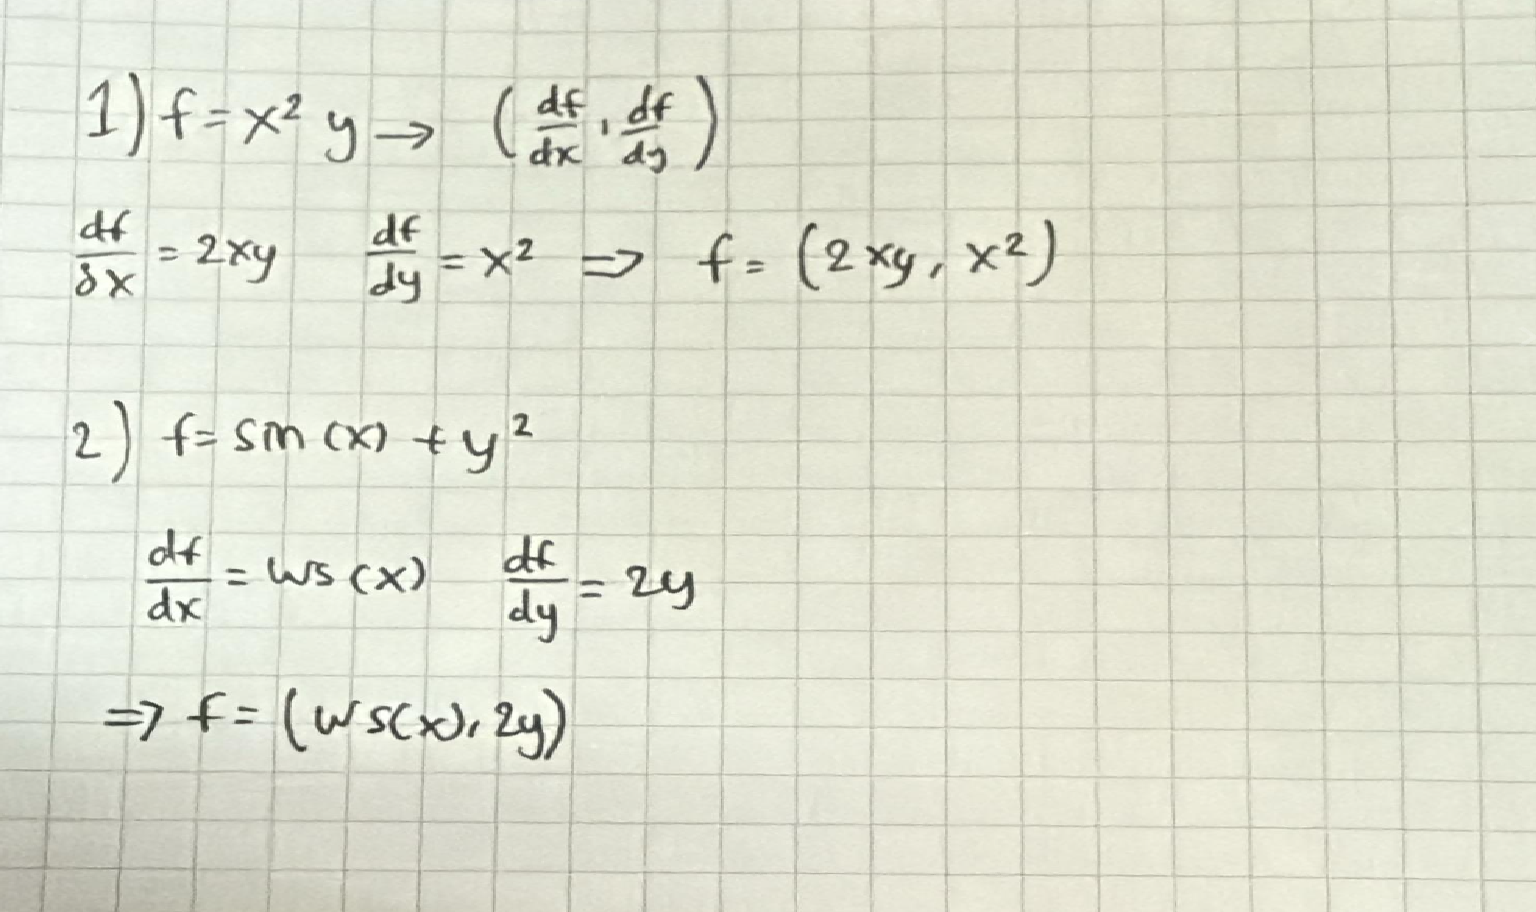 1) f = x² y → (df/dx, df/dy)
df/δx = 2xy df/dy = x² ⇒ f = (2xy, x²)
2) f = sin(x) + y²
df/dx = cos(x) df/dy = 2y
⇒ f = (cos(x), 2y)